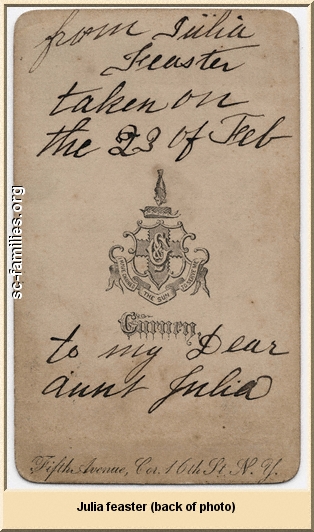 from Julia
Feaster
taken on
the 23 of Feb
THE SUN
Gurney
to my Dear
aunt Julia
Fifth Avenue, Cor. 16th St. N.Y.
sc-families.org
Julia feaster (back of photo)